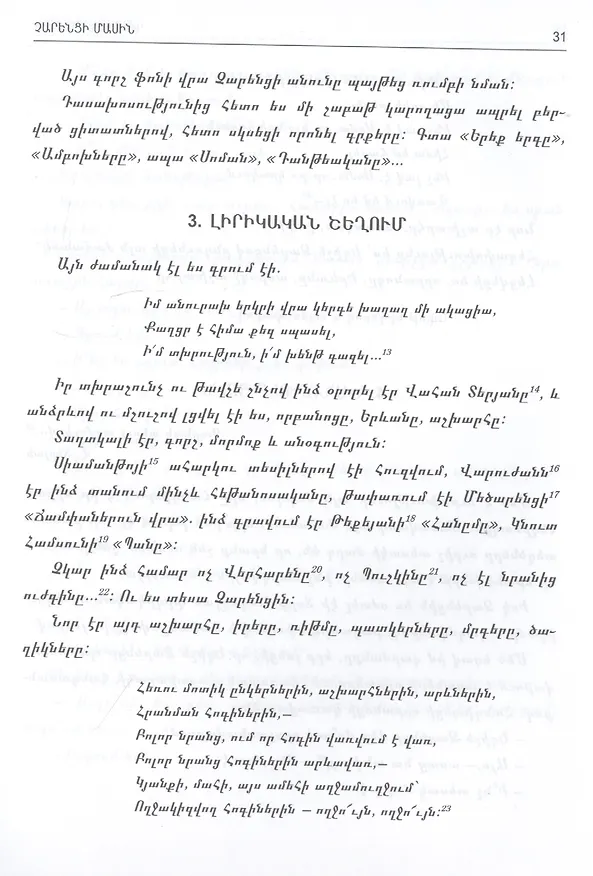 ՉԱՐԵՆՑԻ ՄԱՍԻՆ
31
Այս գորշ ֆոնի վրա Չարենցի անունը պայթեց ռումբի նման:
Դասախոսությունից հետո ես մի շաբաթ կարողացա ապրել բեր-
ված ցիտատներով, հետո սկսեցի որոնել գրքերը: Գտա «Երեք երգը»,
«Ամբոխները», ապա «Սոման», «Դանթեականը»...
3. ԼԻՐԻԿԱԿԱՆ ՇԵՂՈՒՄ
Այն ժամանակ էլ ես գրում էի.
Իմ անուրախ երկրի վրա կերգե խաղաղ մի ակացիա,
Քաղցր է հիմա քեզ սպասել,
Ի՛մ տխրություն, ի՛մ խենթ գազել...13
Իր տխրաշունչ ու թավշե շնչով ինձ օրորել էր Վահան Տերյանը14, և
անձրևով ու մշուշով լցվել էի ես, որբանոցը, Երևանը, աշխարհը:
Տաղտկալի էր, գորշ, մորմոք և անօգություն:
Սիամանթոյի15 ահարկու տեսիլներով էի հուզվում, Վարուժանն16
էր ինձ տանում մինչև հեթանոսականը, թափառում էի Մեծարենցի17
«Ճամփաներուն վրա». ինձ գրավում էր Թեքեյանի18 «Հանըմը», Կնուտ
Համսունի19 «Պանը»:
Չկար ինձ համար ոչ Վերհարենը20, ոչ Պուշկինը21, ոչ էլ նրանից
ուժգինը...22: Ու ես տեսա Չարենցին:
Նոր էր այդ աշխարհը, իրերը, ռիթմը, պատկերները, մրգերը, ծա-
ղիկները:
Հեռու մոտիկ ընկերներին, աշխարհներին, արևներին,
Հրանման հոգիներին,—
Բոլոր նրանց, ում որ հոգին վառվում է վառ,
Բոլոր նրանց հոգիներին արևավառ,—
Կյանքի, մահի, այս ամեհի աղջամուղջում՝
Ողջակիզվող հոգիներին — ողջո՜ւյն, ողջո՜ւյն:23